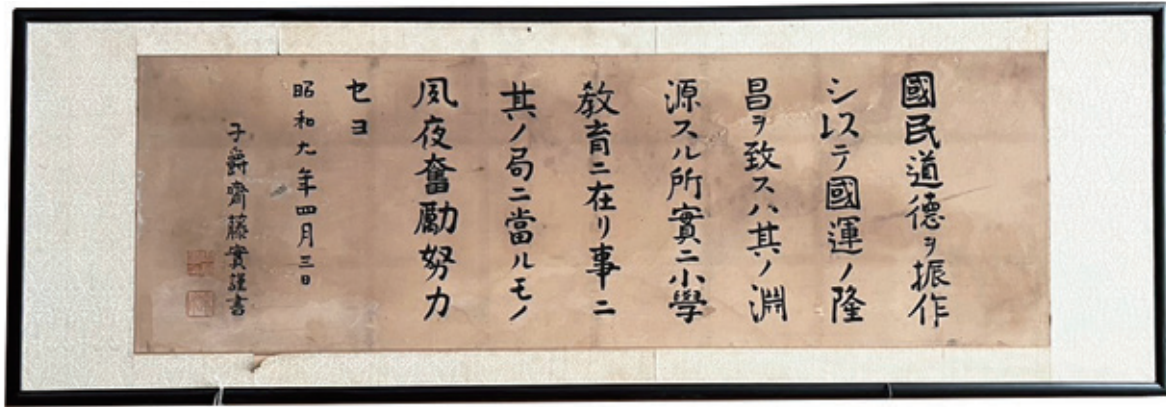 國民道德ヲ振作
シ以テ國運ノ隆
昌ヲ致スハ其ノ淵
源スル所實ニ小學
教育ニ在リ事ニ
其ノ局ニ當ルモノ
夙夜奮勵努力
セヨ
昭和九年四月三日
子爵齋藤實謹書